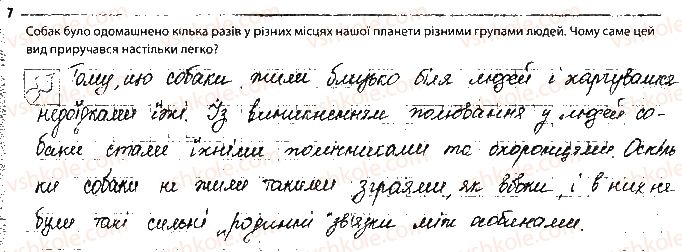 7
Собак було одомашнено кілька разів у різних місцях нашої планети різними групами людей. Чому саме цей
вид приручався настільки легко?
Тому, що собаки жили близько біля людей і харчувалися
недоїдками їжі. Із виникненням полювання у людей со-
баки стали їхніми помічниками та охоронцями. Оскіль
ки собаки не жили такими зграями, як вовки, і в них не
були такі сильні „родинні" зв'язки між особинами.